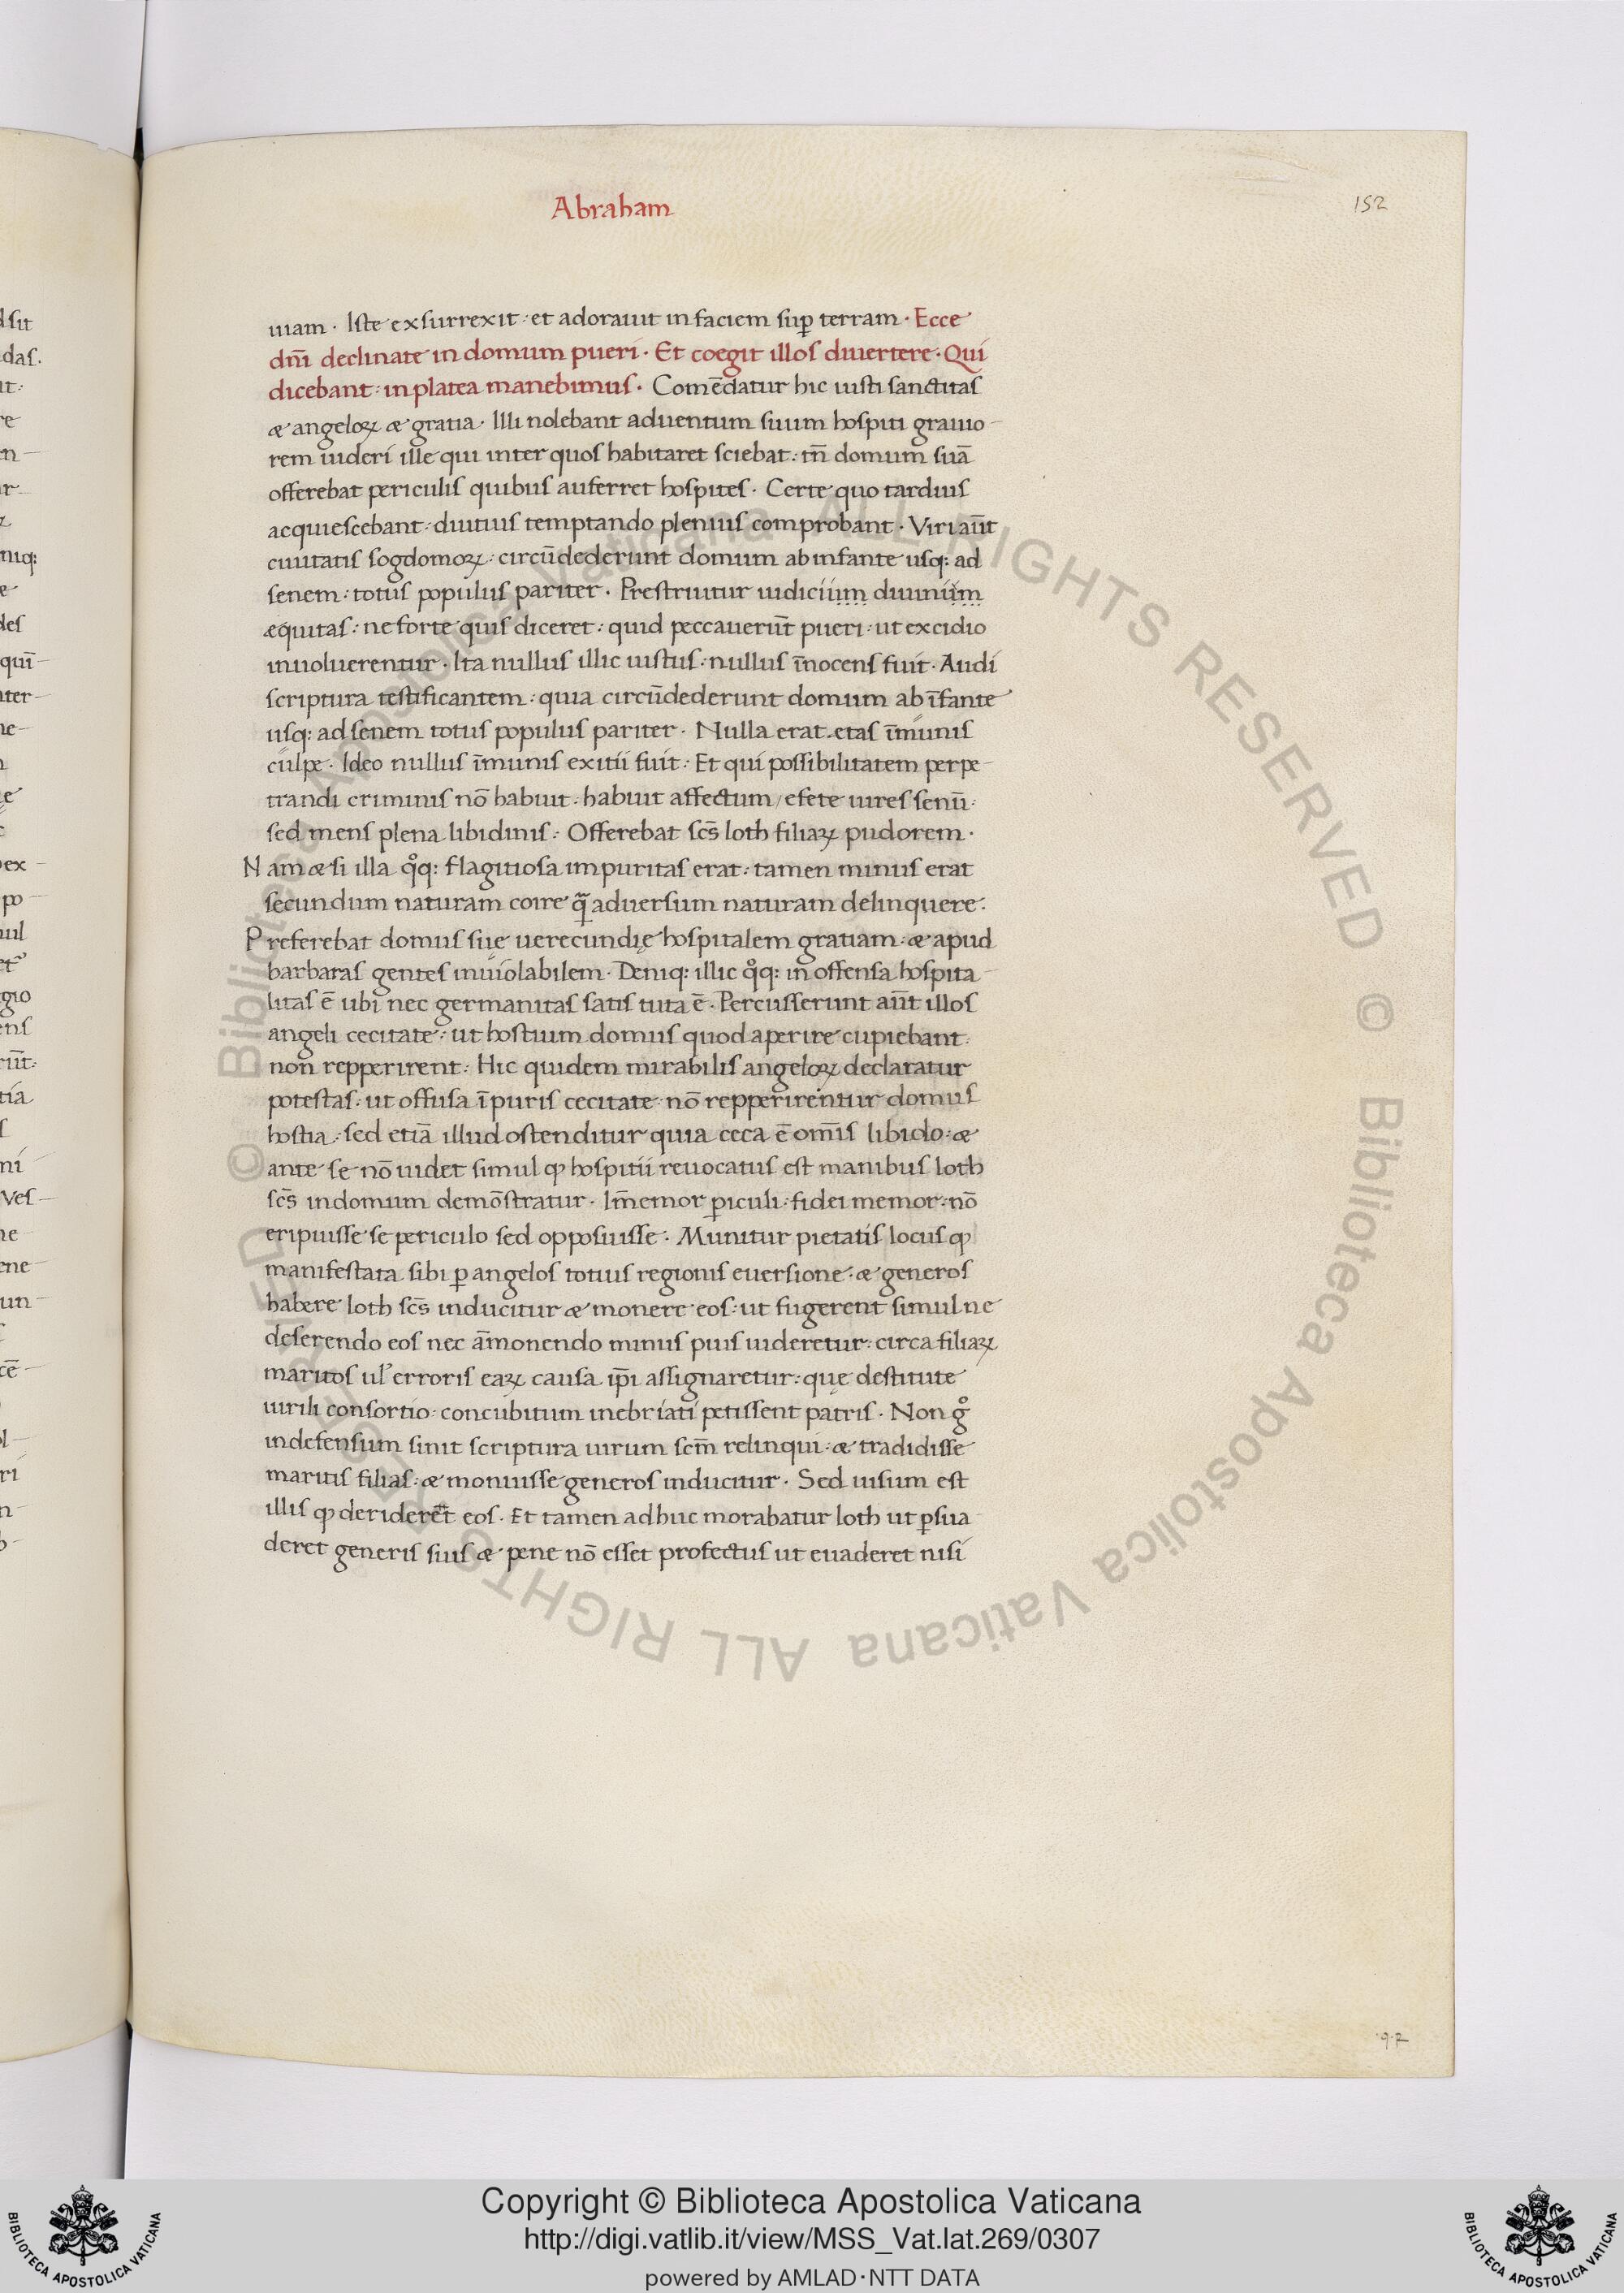 Abraham
152
uiam · Iste exsurrexit : et adorauit in faciem sup̲ terram · Ecce
dn̄i declinate in domum pueri · Et coegit illos diuertere · Qui
dicebant : in platea manebimus · Com̄edatur hic iusti sanctitas
æ angeloꝝ æ gratia · Illi nolebant aduentum suum hospiti grauio-
rem uideri ille qui inter quos habitaret sciebat : tn̄ domum suā
offerebat periculis quibus auferret hospites · Certe quo tardius
acquiescebant : diutius temptando plenius comprobant · Viri aūt
ciuitatis sogdomoꝝ : circūdederunt domum ab infante usq: ad
senem : totus populus pariter · Prestruitur iudicium diuinum
æquitas : ne forte quis diceret : quid peccauerūt pueri : ut excidio
inuoluerentur · Ita nullus illic iustus : nullus īnocens fuit · Audi
scriptura testificantem : quia circūdederunt domum ab īfante
usq: ad senem totus populus pariter · Nulla erat etas īmunis
culpe · Ideo nullus īmunis exitii fuit : Et qui possibilitatem perpe-
trandi criminis nō habuit : habuit affectum / efete uires senū :
sed mens plena libidinis : Offerebat scs̄ loth filiaꝝ pudorem ·
Nam æsi illa qͦq: flagitiosa impuritas erat : tamen minus erat
secundum naturam coire qᷓ aduersum naturam delinquere :
Preferebat domus suę uerecundię hospitalem gratiam : æ apud
barbaras gentes inuiolabilem · Deniq: illic qͦq: in offensa hospita-
litas ē ubi nec germanitas satis tuta ē · Percusserunt aūt illos
angeli cecitate : ut hostium domus quod aperire cupiebant :
non repperirent : Hic quidem mirabilis angeloꝝ declaratur
potestas : ut offusa īpuris cecitate : nō repperirentur domus
hostia : sed etiā illud ostenditur quia ceca ē om̄is libido : æ
ante se nō uidet simul ꝙ hospitii reuocatus est manibus loth
scs̄ in domum demōstratur · Im̄emor ꝑiculi : fidei memor : nō
eripuisse se periculo sed opposuisse · Munitur pietatis locus ꝙ
manifestata sibi ꝑ angelos totius regionis euersione · æ generos
habere loth scs̄ inducitur æ monere eos : ut fugerent simul ne
deserendo eos nec āmonendo minus pius uideretur : circa filiaꝝ
maritos ul' erroris eaꝝ causa ip̄i assignaretur : quę destitute
uirili consortio : concubitum inebriati petissent patris · Non gͦ
indefensum sinit scriptura uirum scm̄ relinqui : æ tradidisse
maritis filias : æ monuisse generos inducitur · Sed uisum est
illis ꝙ derideret eos · Et tamen adhuc morabatur loth ut ꝑsua-
deret generis suis æ pene nō esset profectus ut euaderet nisi
Copyright © Biblioteca Apostolica Vaticana
http://digi.vatlib.it/view/MSS_Vat.lat.269/0307
powered by AMLAD·NTT DATA